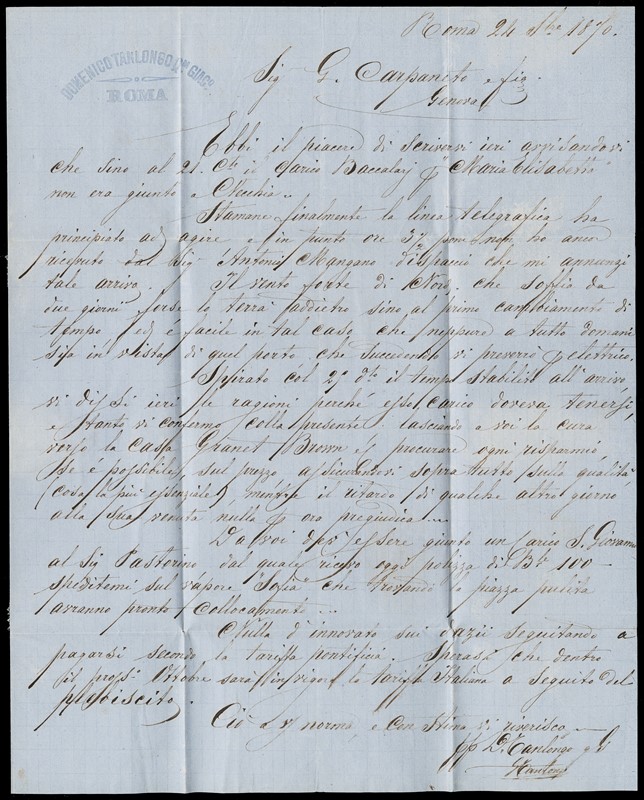 DOMENICO TANLONGO qm GIACo
ROMA
Roma 24 7bre 1870.
Sig G. Carpaneto e fi
Genova
Ebbi il piacere di scriverVi ieri avvisandovi
che sino al 21. Ct il Carico Baccalaj "Maria Elisabetta"
non era giunto a Cvecchia.
Stamane finalmente la linea telegrafica ha
principiato ad agire e in punto ore 3½ pom. non ho ancor
ricevuto dal Sig Antonio Mangano dispaccio che mi annunzi
tale arrivo. Il vento forte di Nord, che soffia da
due giorni forse lo terrà addietro sino al primo cambiamento di
tempo ed è facile in tal caso che neppure a tutto domani
sia in vista di quel porto che succedendo vi preverrò elettrico.
Spirato col 20 dto il tempo stabilito all'arrivo,
vi dissi ieri le ragioni perché esso carico doveva tenersi,
e tanto vi confermo colla presente lasciando a voi la cura
verso la Casa Granet Brown di procurare ogni risparmio,
se è possibile, sul prezzo assicurandovi sopra tutto sulla qualità
(cosa la più essenziale) mentre il ritardo di qualche altro giorno
alla sua venuta nulla p ora pregiudica.
Da voi dev'essere giunto un carico S. Giovanni
al Sig Pastorino dal quale ricevo oggi polizza di B 100 -
speditemi sul vapore "Sofia" che trovando la piazza pulita
avranno pronto collocamento.
Nulla d'innovato sui dazii seguitando a
pagarsi secondo la tariffa pontificia. Sperasi che dentro
il pross. Ottobre sarà in vigore la tariffa Italiana a seguito del
plebiscito.
Ciò a vs norma, e con stima vi riverisco
pp D. Tanlongo q G